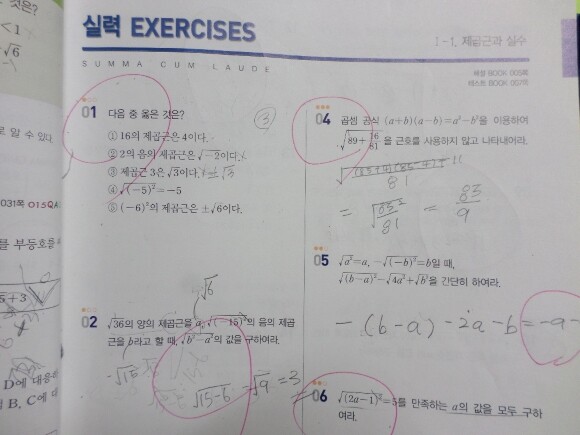 실력 EXERCISES
SUMMA CUM LAUDE
I-1. 제곱근과 실수
01 다음 중 옳은 것은?
③
① 16의 제곱근은 4이다.
② 2의 음의 제곱근은 √-2이다.
③ 제곱근 3은 √3이다. ±√3
④ √(-5)² = -5
⑤ (-6)²의 제곱근은 ±√6이다.
√6
02 √36의 양의 제곱근을 a, √(-15)²의 음의 제곱
근을 b라고 할 때, √b²-a²의 값을 구하여라.
√15-6 √9 = 3
04 곱셈 공식 (a+b)(a-b)=a²-b²을 이용하여
√89+16/81 을 근호를 사용하지 않고 나타내어라.
= √83²/81 = 83/9
05 √a²=a, -√(-b)²=b일 때,
√(b-a)²-√4a²+√b²을 간단히 하여라.
- (b-a) -2a-b = -a-
06 √(2a-1)²=5를 만족하는 a의 값을 모두 구하
여라.
것은?
<1
√6
로 알 수 있다
031쪽 015
를 부등호를
5+3
D에 대응
B, C에 대